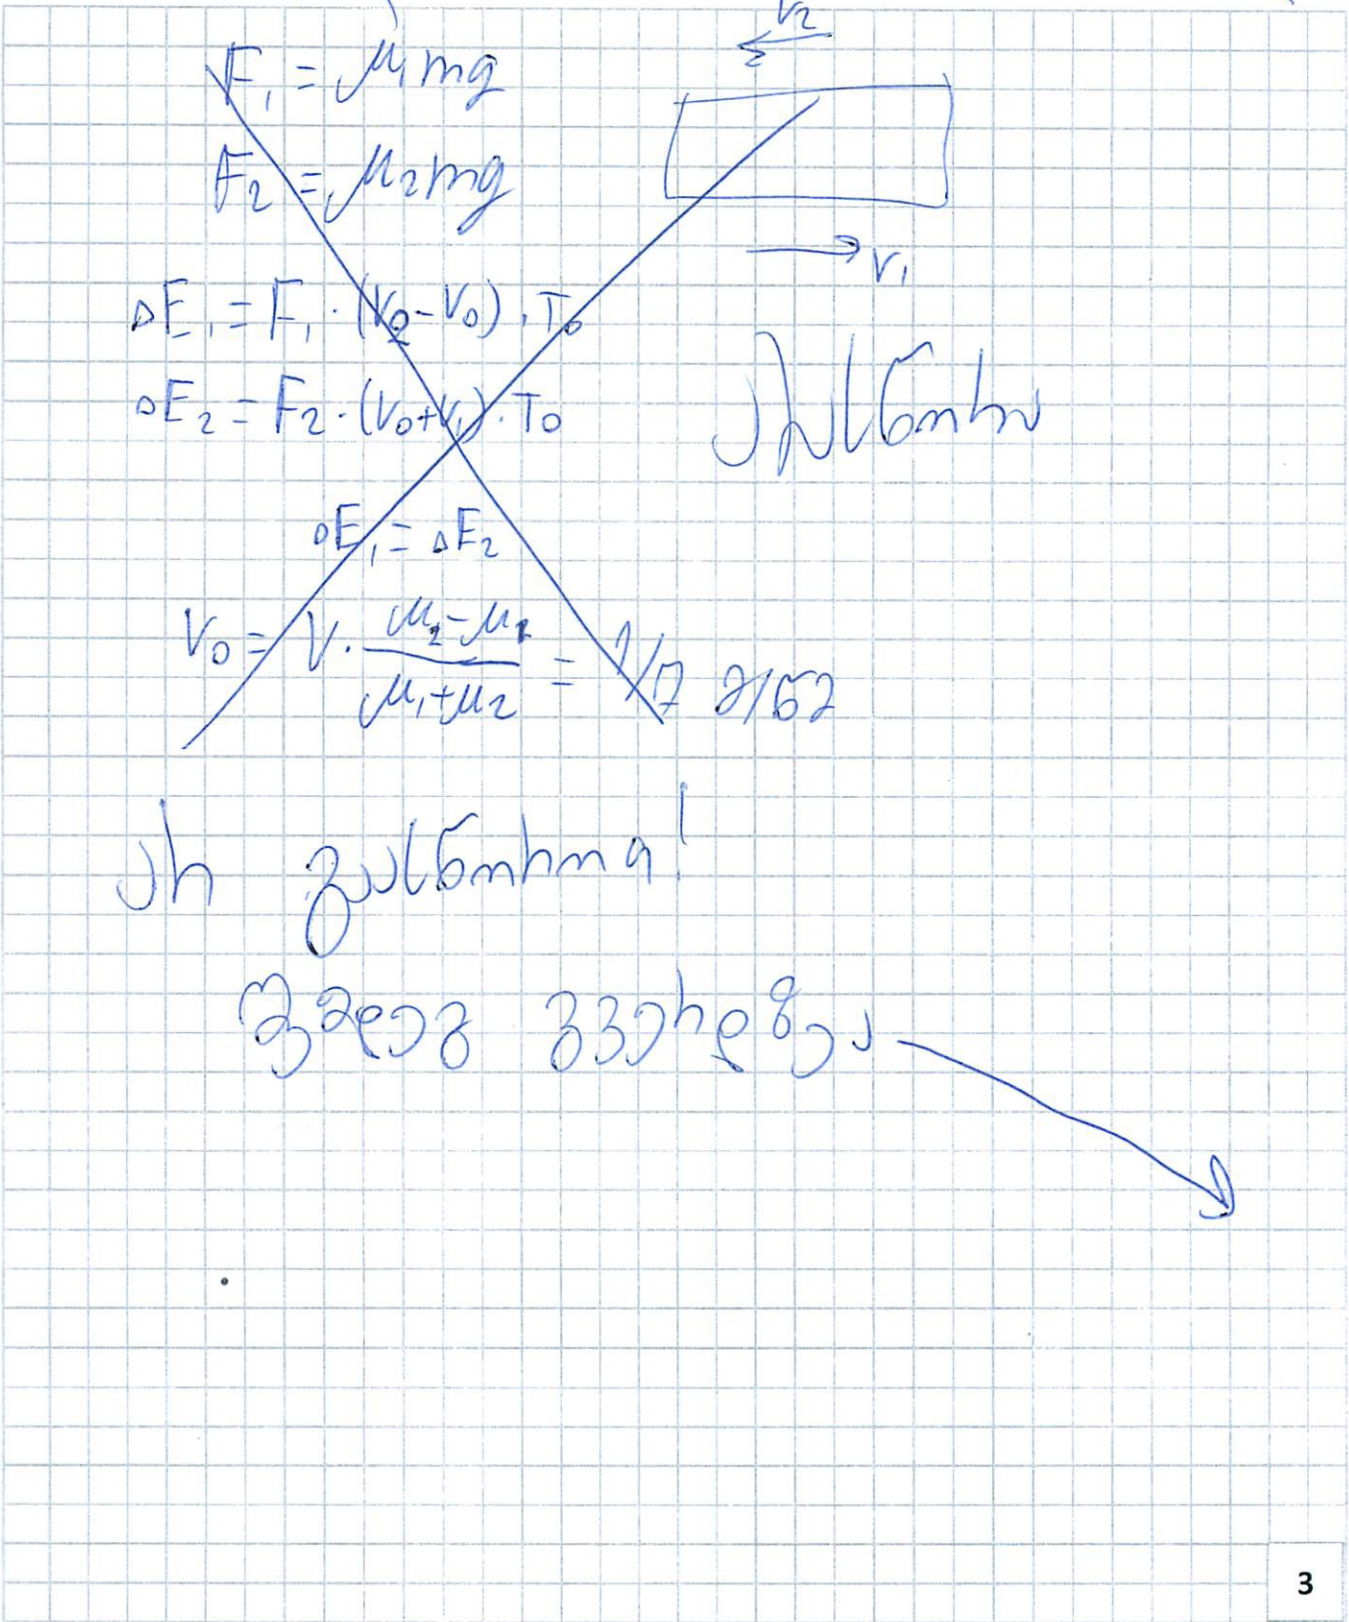 F₁ = μ₁mg
V₂
F₂ = μ₂mg
V₁
ΔE₁ = F₁ · (V₂ - V₀) · T₀
ΔE₂ = F₂ · (V₀ + V₁) · T₀
ΔE₁ = ΔE₂
V₀ = V · (μ₂ - μ₁)/(μ₁ + μ₂) = 1/7 მ/წმ
არ გაასწოროთ!
შემდეგ გვერდზეა
3